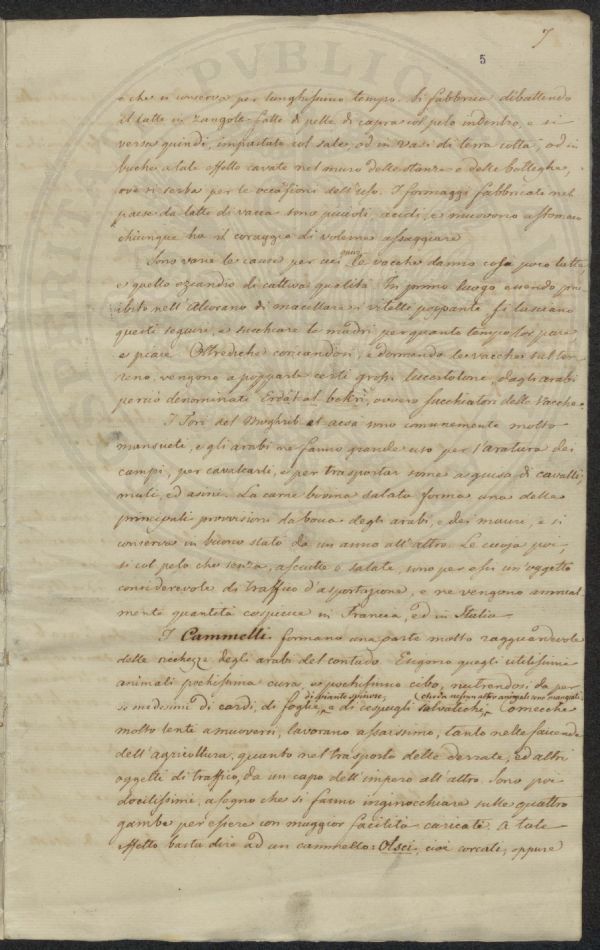 7
5
e che si conserva per lunghissimo tempo. Si fabbrica dibattendo
il latte in zangole fatte di pelle di capra col pelo indentro, e si
versa quindi, impastato col sale, od in vasi di terra cotta, od in
buche a tale effetto cavate nel muro delle stanze e delle botteghe,
ove si serba per le occasioni dell'uso. I formaggi fabbricati nel
paese da latte di vacca sono piccioli, acidi, e muovono a stomaco
chiunque ha il coraggio di volerne assaggiare
Sono varie le cause per cui quivi le vacche danno cosa poco latte
e quello eziandio di cattiva qualità. In primo luogo essendo proi
bito nell'Alcorano di macellare i vitelli poppanti si lasciano
questi seguire, e succhiare le madri per quanto tempo lor pare
e piace. Oltrediché coricandosi, e dormendo le vacche sul ter
reno, vengono a popparle certi grossi lucertoloni, dagli arabi
perciò denominati Erdàt al bekri, ovvero succhiatori delle vacche.
I Tori del Moghrib el acsa sono comunemente molto
mansueti, e gli arabi ne fanno grande uso per l'aratura dei
campi, per cavalcarli, e per trasportar some a guisa di cavalli,
muli, ed asini. La carne bovina salata forma una delle
principali provvisioni da bocca degli arabi, e dei mauri, e si
conserva in buono stato da un anno all'altro. Le cuoja poi,
sì col pelo che senza, asciutte o salate, sono per essi un'oggetto
considerevole di traffico d'asportazione, e ne vengono annual
mente quantità cospicue in Francia, ed in Italia
I Cammelli formano una parte molto ragguardevole
delle ricchezze degli arabi del contado. Esigono quegli utilissimi
animali pochissima cura, e pochissimo cibo, nutrendosi da per
se medesimi di cardi, di foglie di piante spinose, e di cespugli salvatichi, che da nessun altri animali son mangiati. Comecché
molto lenti a muoversi, lavorano assaissimo, tanto nelle faccende
dell'agricoltura, quanto nel trasporto delle derrate, ed altri
oggetti di traffico, da un capo dell'impero all'altro. Sono poi
docilissimi, a segno che si fanno inginocchiare sulle quattro
gambe per essere con maggior facilità caricati. A tale
effetto basta dire ad un cammello: Olsci, cioè corcati, oppure